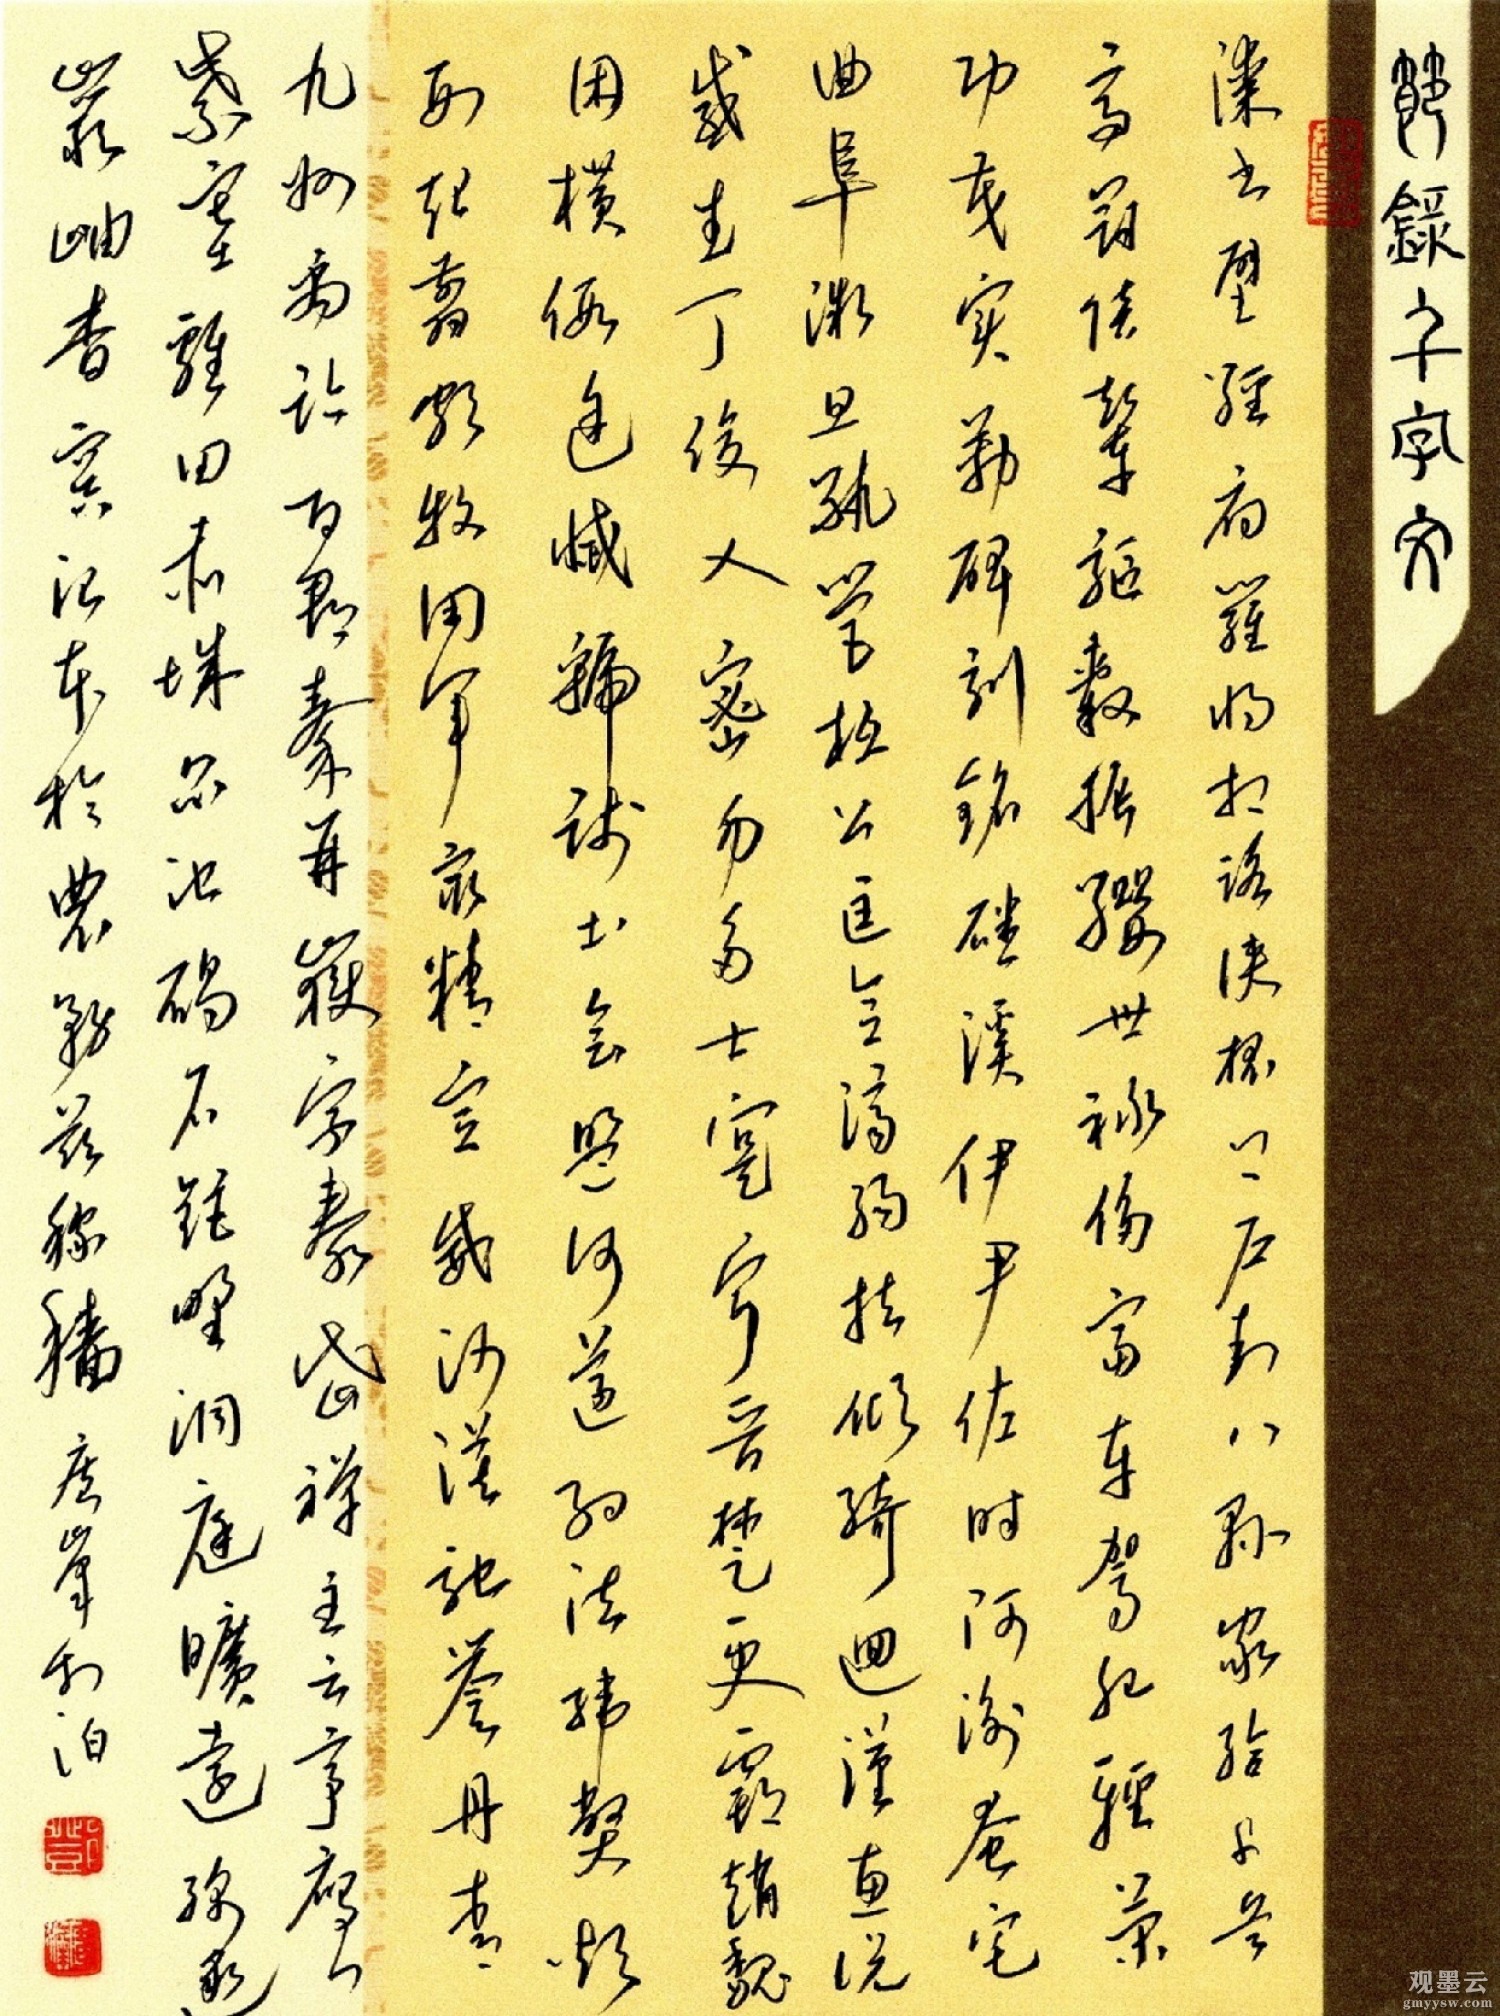 節錄千字文
漆书壁經府羅将相路俠槐卿户封八縣家給千兵
高冠陪輦驅轂振纓世禄侈富车驾肥輕策
功茂实勒碑刻銘磻溪伊尹佐时阿衡奄宅
曲阜微旦孰营桓公匡合濟弱扶倾綺迴漢惠说
感武丁俊乂密勿多士寔寧晋楚更霸趙魏
困横假途滅虢踐土会盟何遵约法韩弊烦
刑起翦頗牧用軍最精宣威沙漠馳誉丹青
九州禹跡百郡秦并嶽宗泰岱禅主云亭雁门
紫塞雞田赤城昆池碣石鉅野洞庭曠遠緜邈
巖岫杳冥治本於農務兹稼穑
观墨云
gmyysw.com